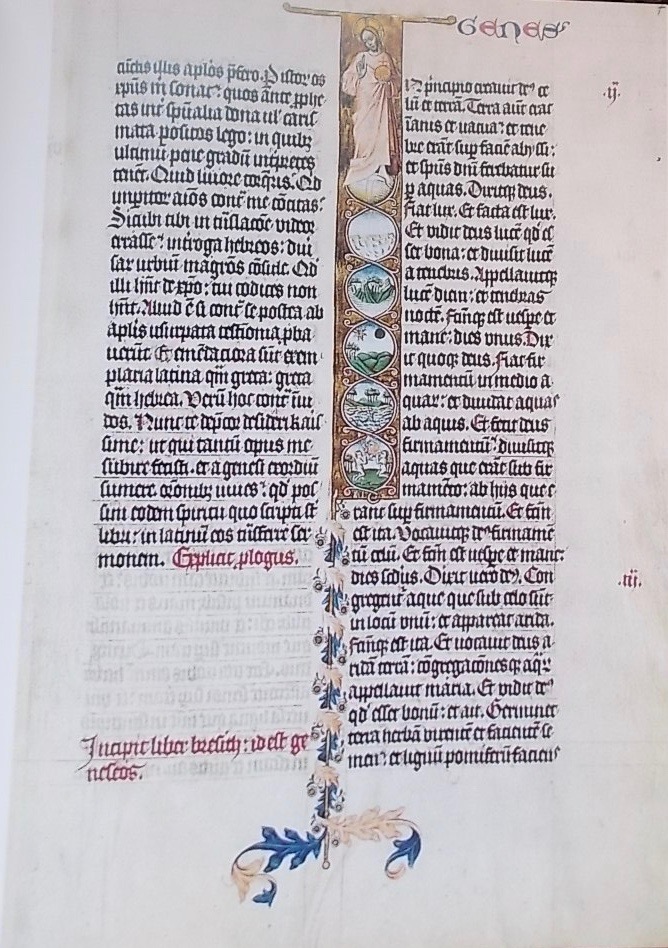 GENES
cunctis illis aplos p̄fero. Pistor os
xp̄us in sonat: quos ante ꝓphe
tas int̾ sp̄ualia dona ul' caris
mata positos lego: in quibꝫ
ultimū pene gradū int̾pretes
tenēt. Quid livore torq̄ris. Qd
inꝑitor aīos contᵃ me cōcitas:
Sicubi tibi in trāslacōe videor
errasse: int̾roga hebreos: diū
sar urbiū magr̄os cōsule. Qd
illi hn̄t de xp̄o: tui codices non
hn̄t. Aliud ē si contᵃ se postea ab
aplis usurpata testīonia ꝓba
uerūt. Et emēdaciora sūt exem
plaria latina qm̄ greca: greca
qm̄ hebrea. Verū hoc contᵃ īui
dos. Nunc te dep̄cor desideri kais
sime: ut qui tantū opus me
subire fecisti. et a genesi exordiū
sumere. oronibꝫ iuues: qd' pos
sim eodem spiritu quo scripti sūt
libri: in latinū eos trāsferre ser
monem. Explicit ꝓlogus.
Incipit liber bresich: id est ge
neseos.
In principio creauit de⁹ ce
lū et terrā. Terra aūt erat
īanis et uacua: et tene
bre erāt sup faciē abyssi:
et sp̄us dn̄i ferebatur su
ꝑ aquas. Dixitqꝫ deus.
Fiat lux. Et facta est lux.
Et vidit deus lucē qd' es
set bona: et diuisit lucē
a tenebris. Appellauitqꝫ
lucē diem: et tenebras
noctē. Fc̄mqꝫ est uespe et
mane: dies vnus. Dix
it quoqꝫ deus. Fiat fir
mamentū in medio a
quar̄: et diuidat aquas
ab aquis. Et fecit deus
firmamentū: diuisitqꝫ
aquas que erāt sub fir
mamēto: ab hijs que e
rant sup firmamentū. Et fc̄m
est ita. Vocauitqꝫ de⁹ firmamē
tū celū. Et fc̄m est uespe et mane:
dies scd̄us. Dixit uero de⁹. Con
gregent̾ aque que sub celo sūt
in locū vnū: et appareat arida.
Fc̄mqꝫ est ita. Et uocauit deus a
ridā terrā: cōgregacōnesqꝫ aqꝛ̄
appellauit maria. Et vidit de⁹
qd' esset bonū: et ait. Germinet
terra herbā virentē et facientē se
men: et lignū pomiferū faciens
.ij.
.iij.